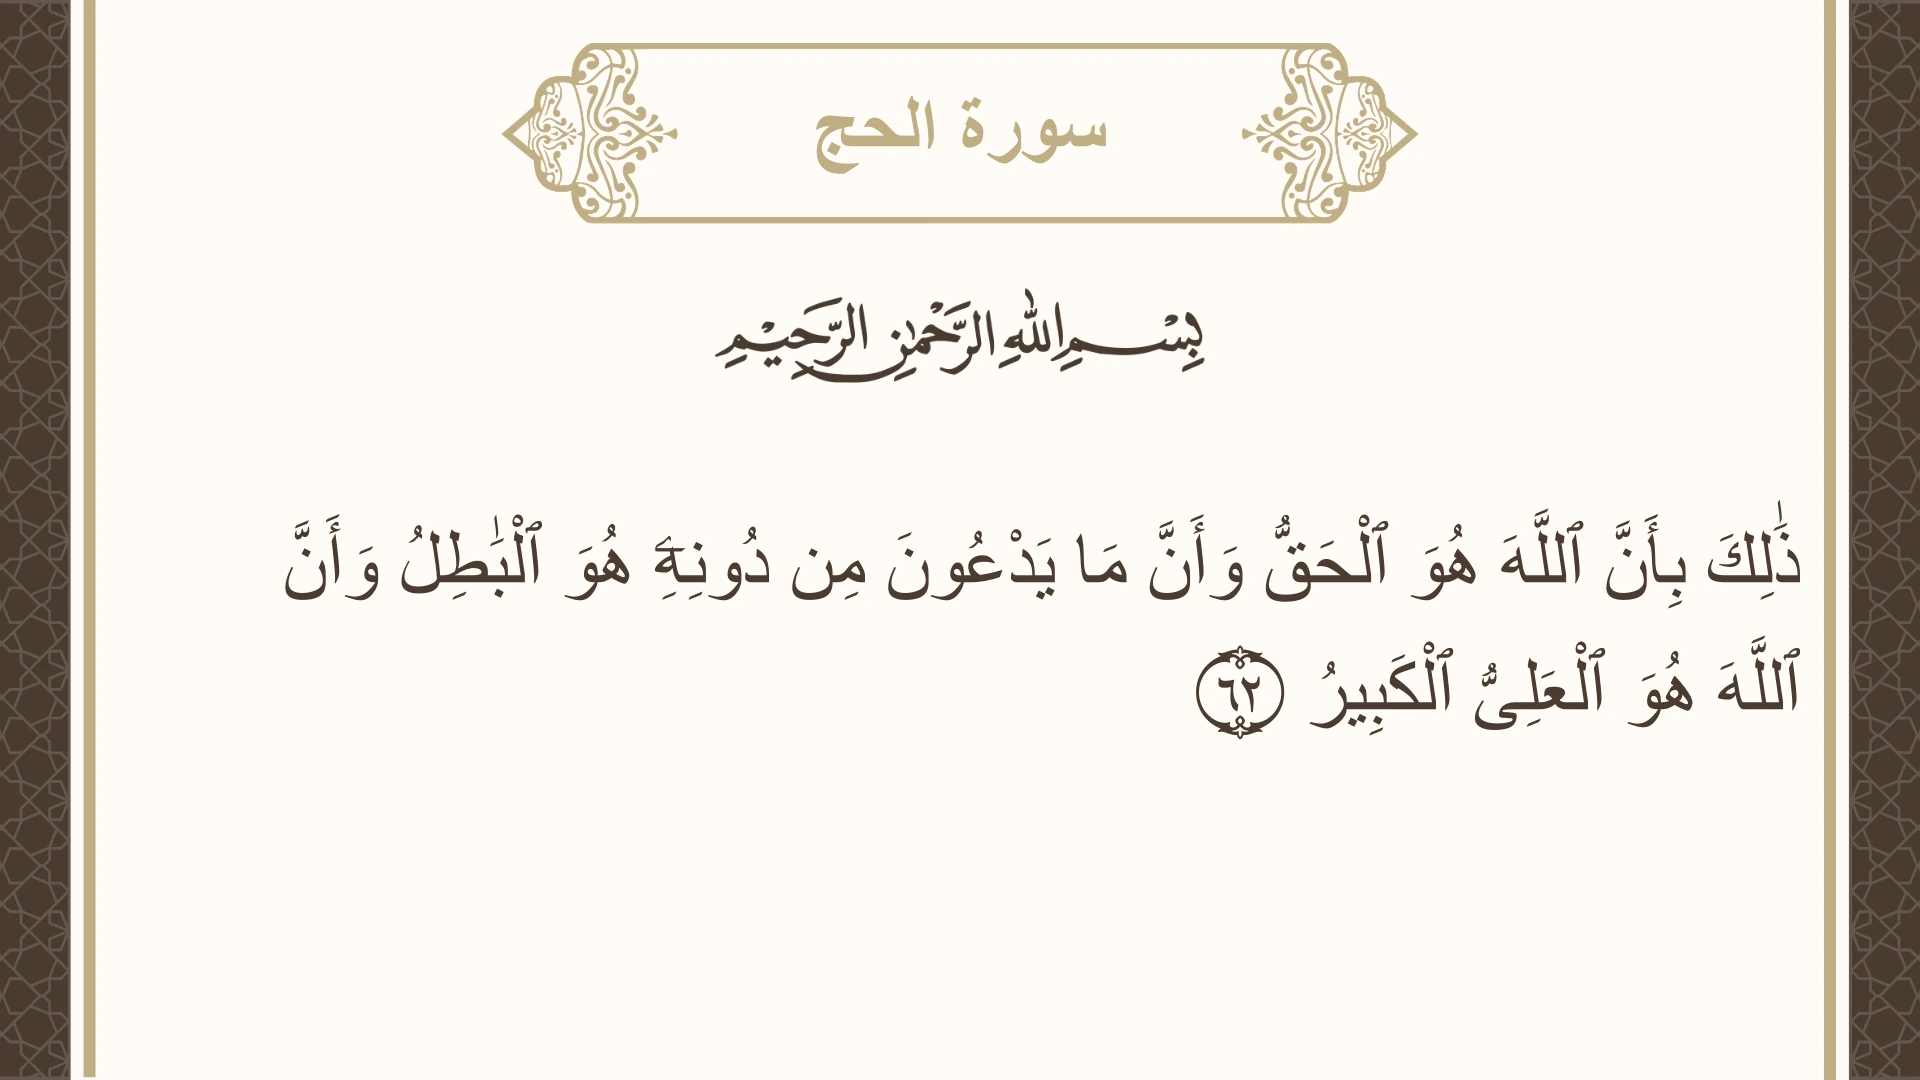 سورة الحج
بِسْمِ اللهِ الرَّحْمٰنِ الرَّحِيْمِ
ذَٰلِكَ بِأَنَّ ٱللَّهَ هُوَ ٱلْحَقُّ وَأَنَّ مَا يَدْعُونَ مِن دُونِهِۦ هُوَ ٱلْبَٰطِلُ وَأَنَّ
ٱللَّهَ هُوَ ٱلْعَلِىُّ ٱلْكَبِيرُ ٦٢